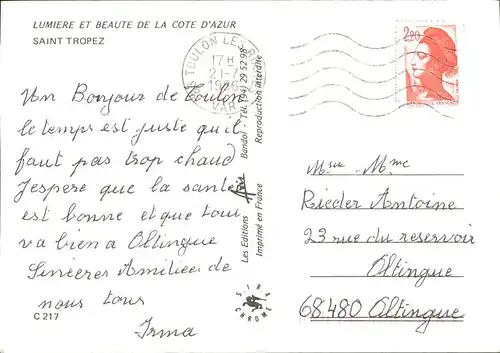 LUMIERE ET BEAUTE DE LA COTE D'AZUR
SAINT TROPEZ
TOULON
17 H
21-7
VAR
2,20
Un Bonjour de Toulon
le temps est juste qu'il
faut pas trop chaud
J'espere que la santé
est bonne et que tout
va bien a Oltingue
Sincères Amitiees de
nous tous
Irma
C 217
Les Editions Aris Bandol - Tél. (94) 29 52 98
Imprimé en France Reproduction interdite
SIRA CHROME
Mr Mme
Rieder Antoine
23 rue du reservoir
Oltingue
68480 Oltingue